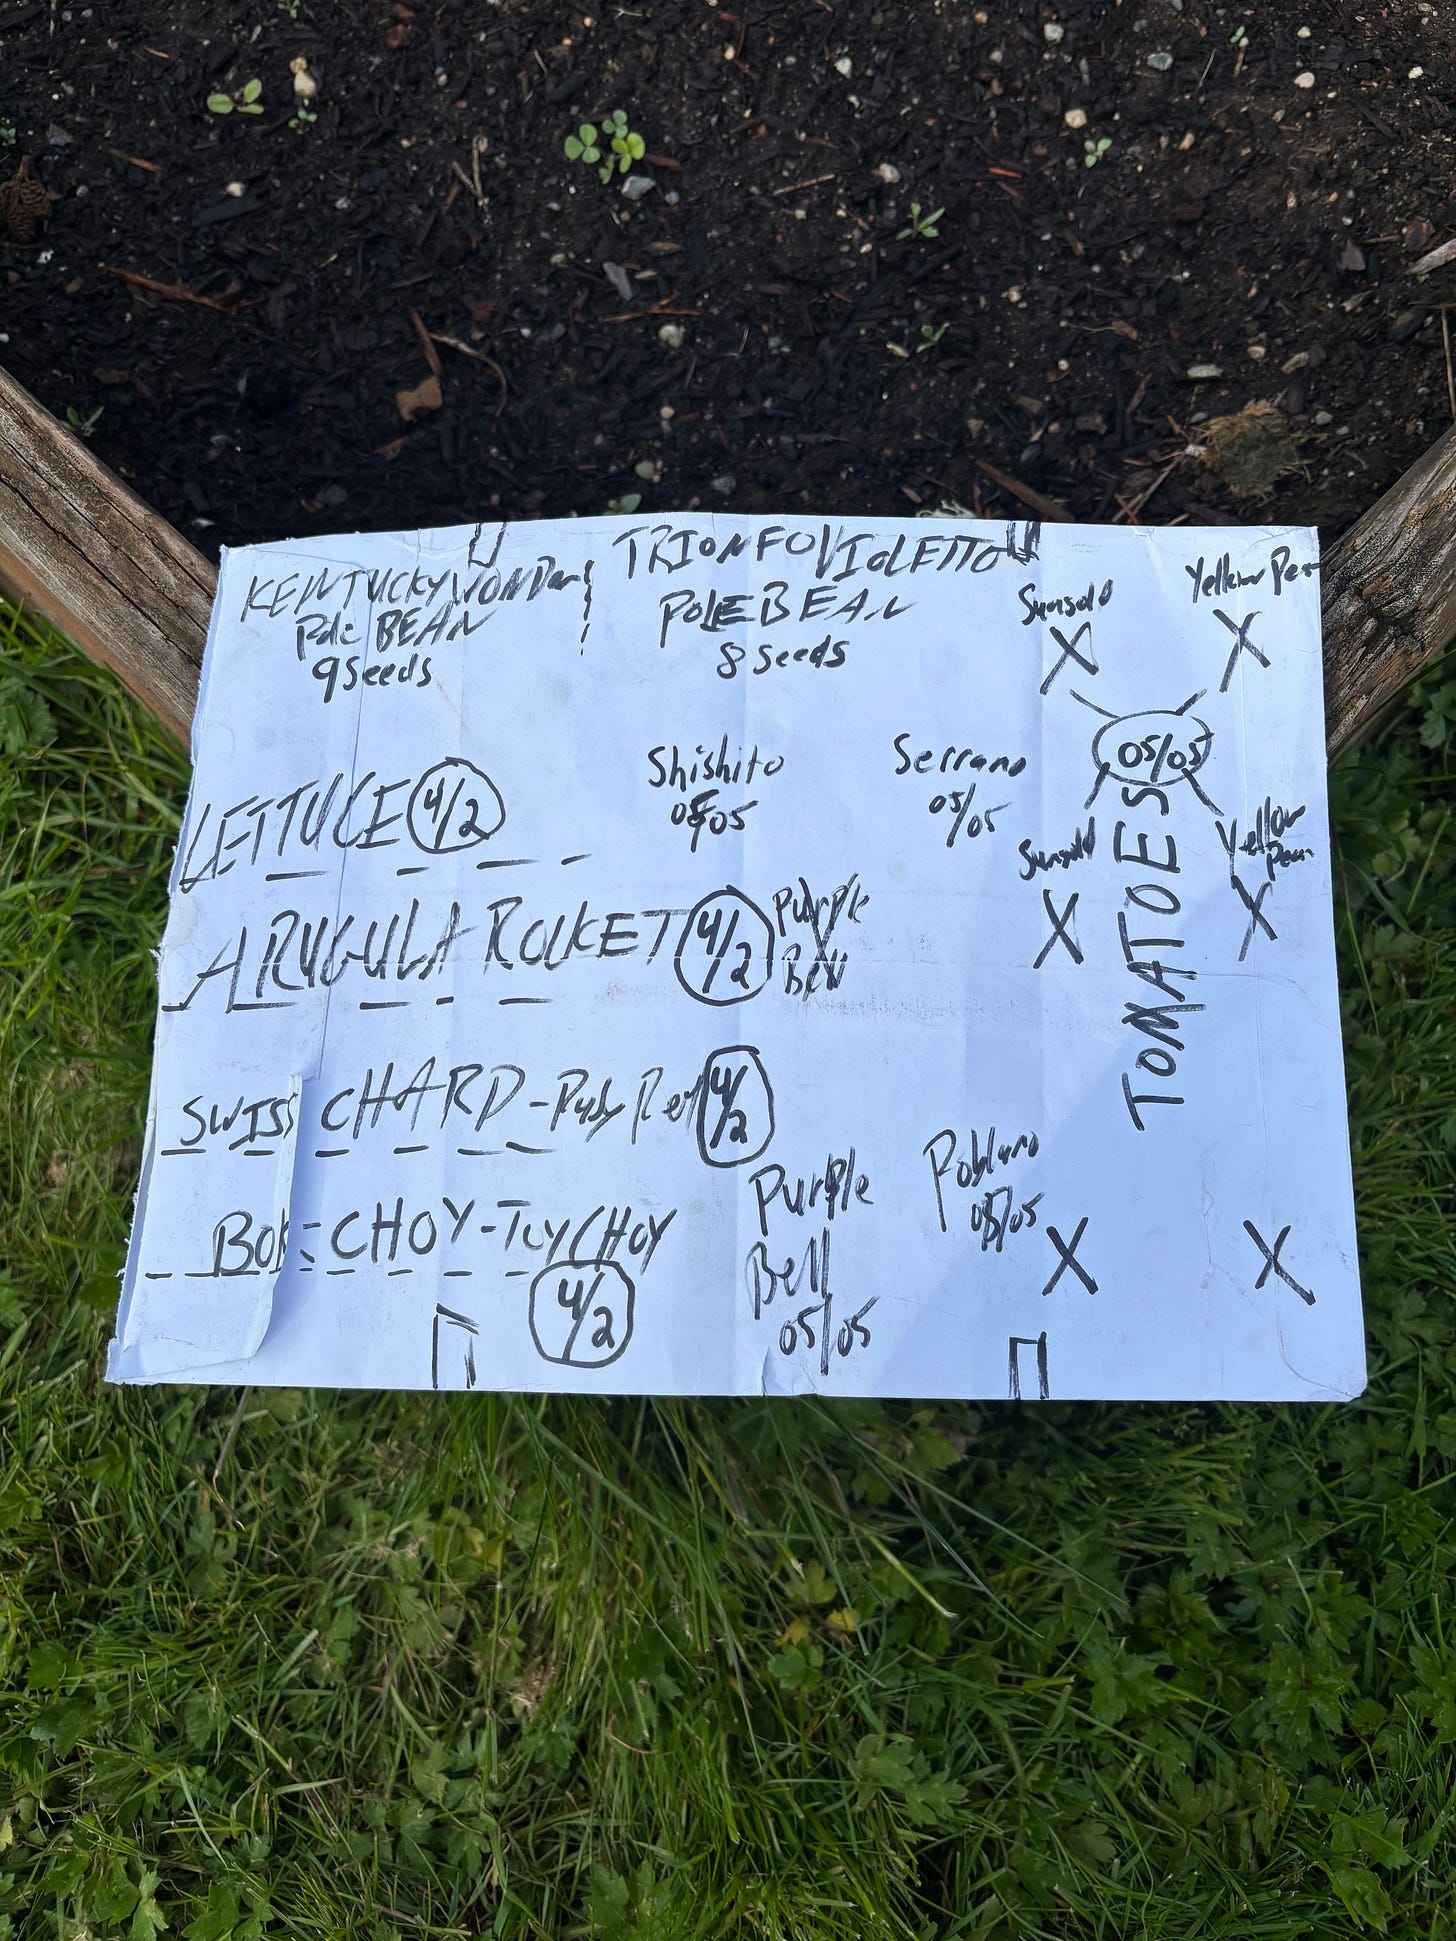 KENTUCKY WONDER
Pole BEAN
9 Seeds
TRIONFO VIOLETTO
POLE BEAN
8 Seeds
Sungold
X
Yellow Pear
X
LETTUCE 4/2
Shishito
05/05
Serrano
05/05
05/05
TOMATOES
Sungold
X
Yellow
Pear
X
ARUGULA ROCKET 4/2
Purple
SWISS CHARD - Ruby Red 4/2
BOK-CHOY-TOY CHOY
4/2
Purple
Bell
05/05
Poblano
05/05
X
X